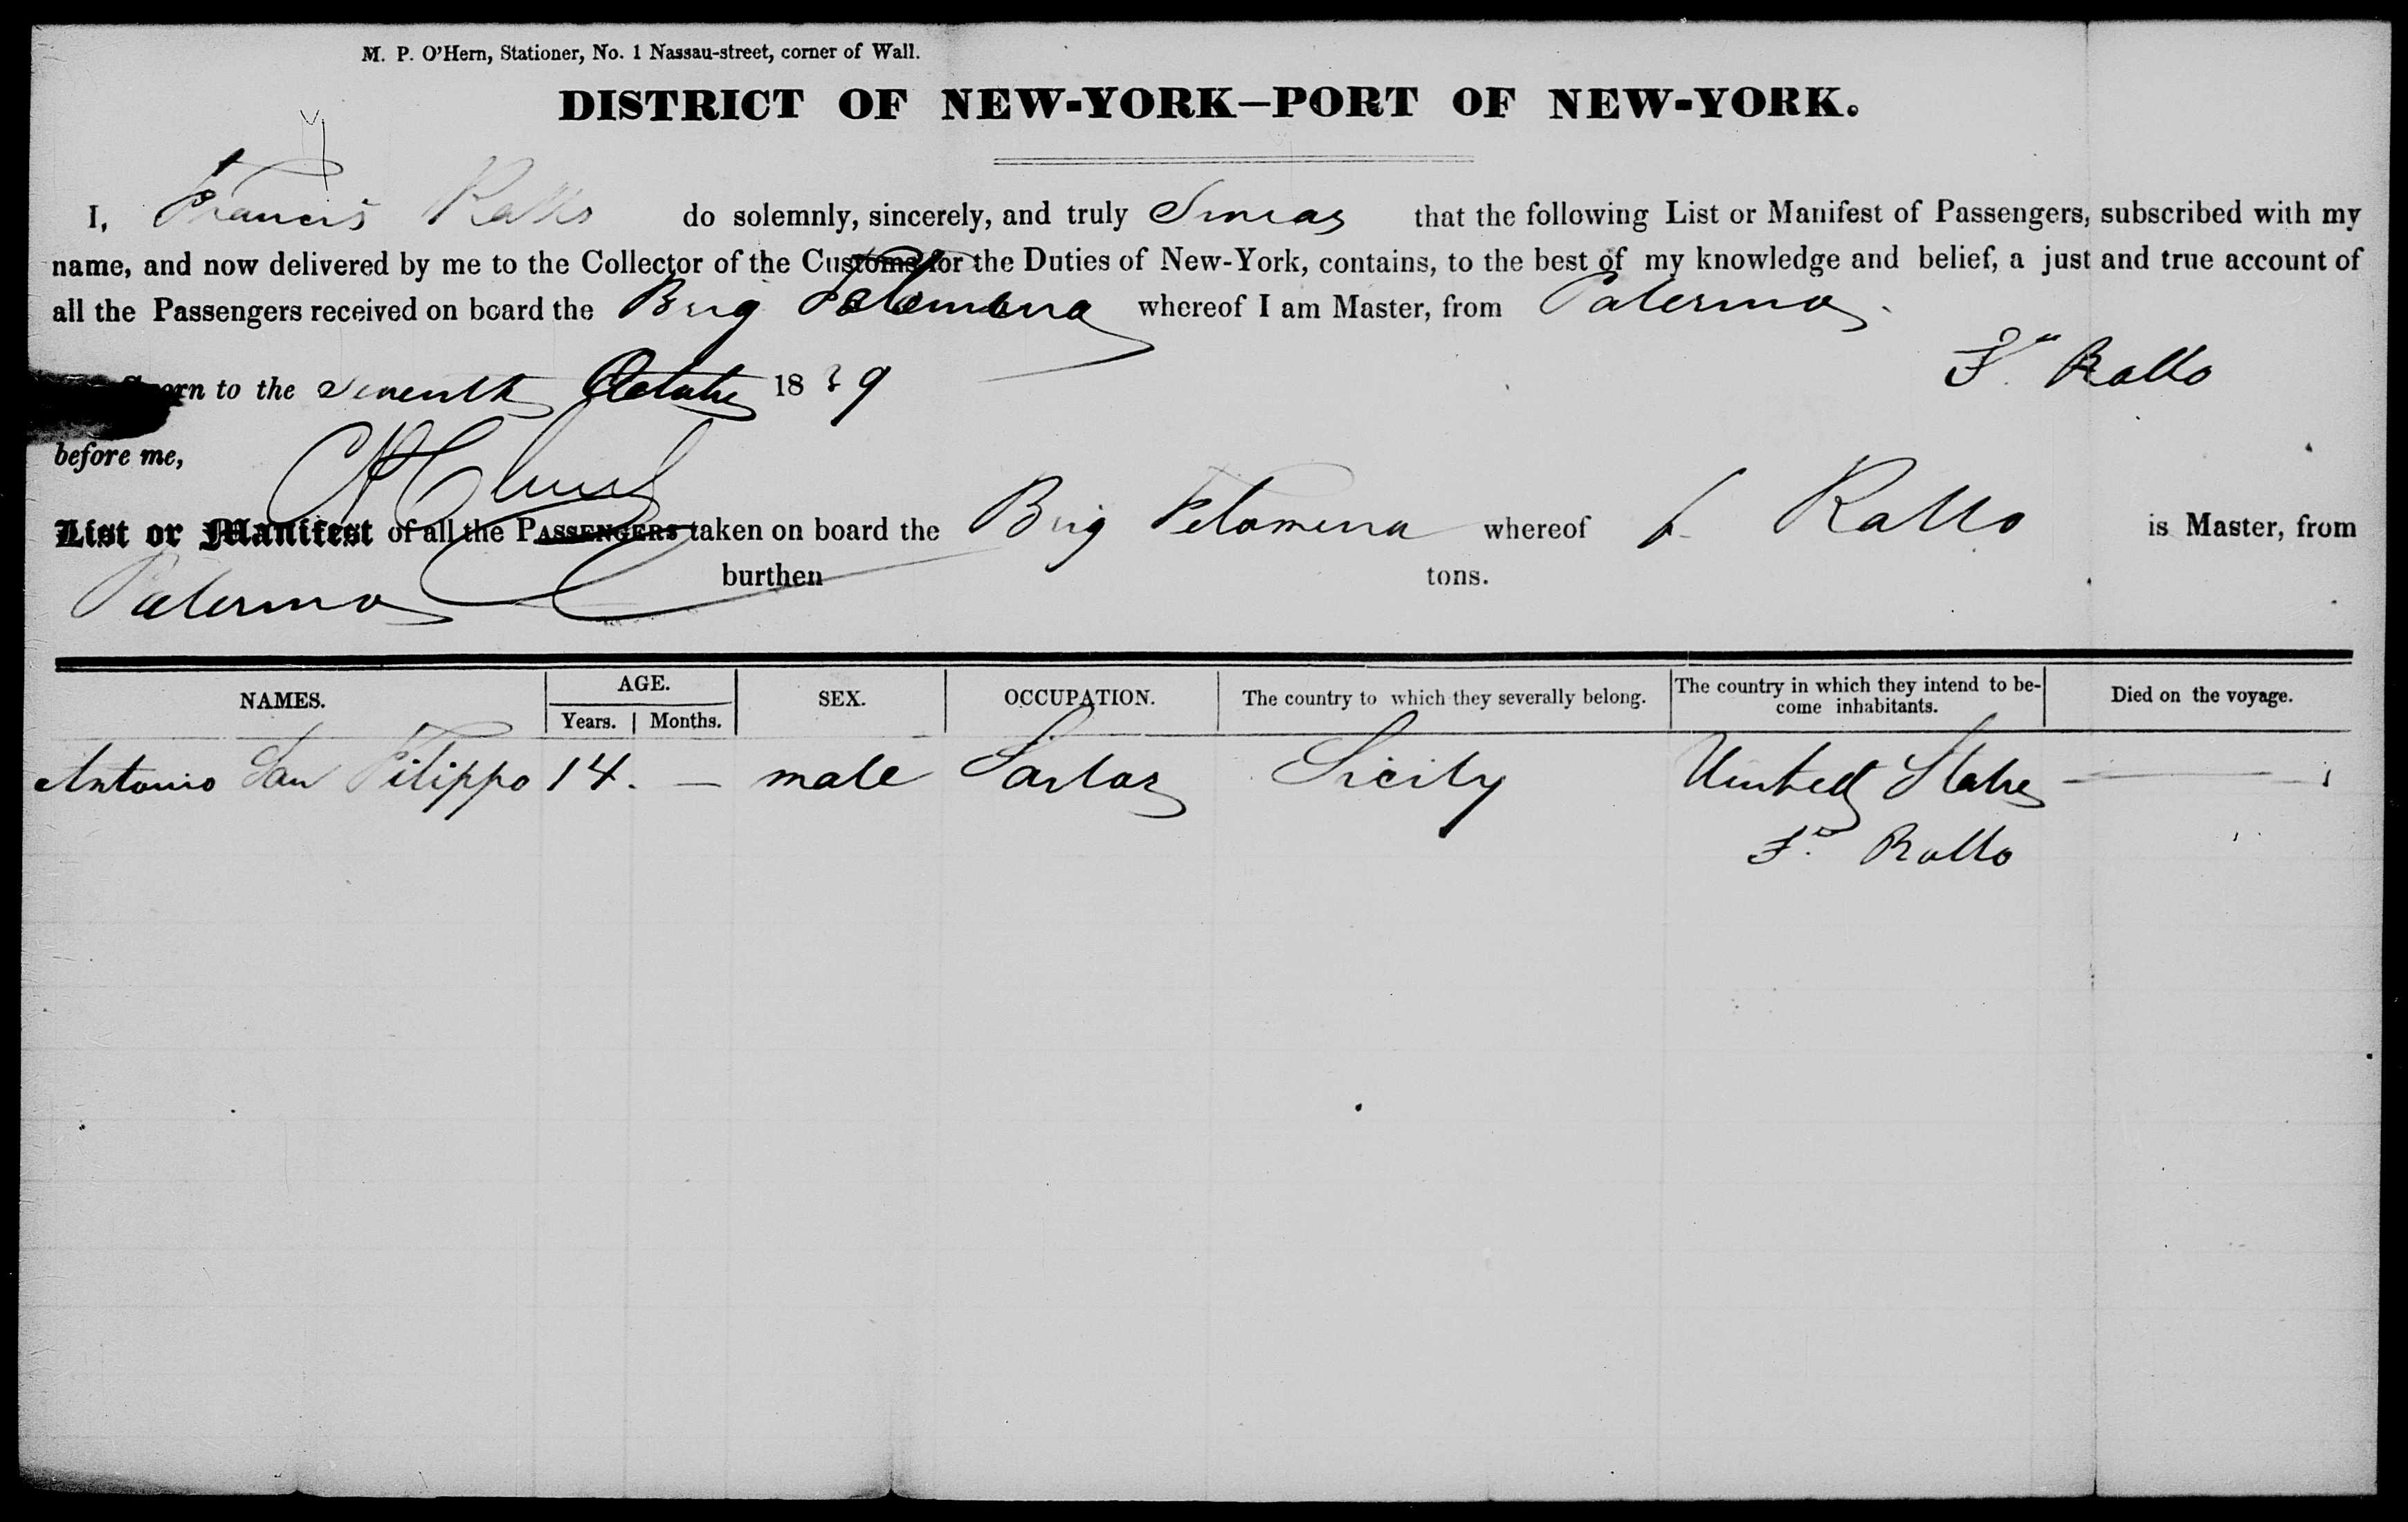 M. P. O'Hern, Stationer, No. 1 Nassau-street, corner of Wall.
DISTRICT OF NEW-YORK—PORT OF NEW-YORK.
I, Francis Rallo do solemnly, sincerely, and truly Swear that the following List or Manifest of Passengers, subscribed with my
name, and now delivered by me to the Collector of the Customs for the Duties of New-York, contains, to the best of my knowledge and belief, a just and true account of
all the Passengers received on board the Brig Felomena whereof I am Master, from Palermo.
Fr. Rallo
Sworn to the Seventh October 1839
before me,
List or Manifest of all the PASSENGERS taken on board the Brig Felomena whereof F. Rallo is Master, from
Palermo burthen tons.
NAMES. AGE. Years. Months. SEX. OCCUPATION. The country to which they severally belong. The country in which they intend to be-come inhabitants. Died on the voyage.
Antonio San Filippo 14. — male Sicily United States —
Fr. Rallo